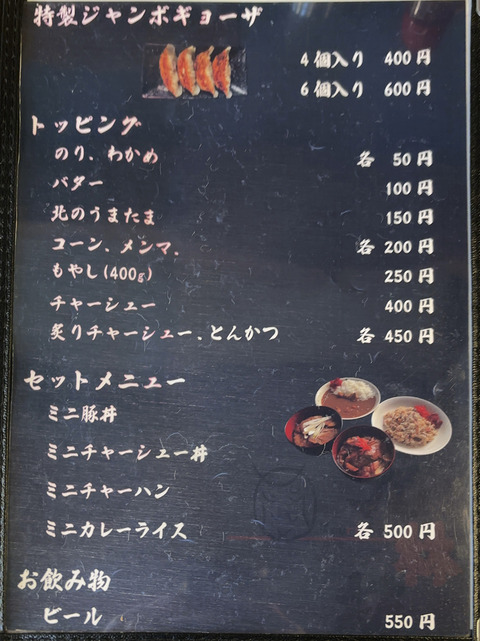 特製ジャンボギョーザ
4個入り 400円
6個入り 600円
トッピング
のり、わかめ 各 50円
バター 100円
北のうまたま 150円
コーン、メンマ、 各 200円
もやし(400g) 250円
チャーシュー 400円
炙りチャーシュー、とんかつ 各 450円
セットメニュー
ミニ豚丼
ミニチャーシュー丼
ミニチャーハン
ミニカレーライス 各 500円
お飲み物
ビール 550円